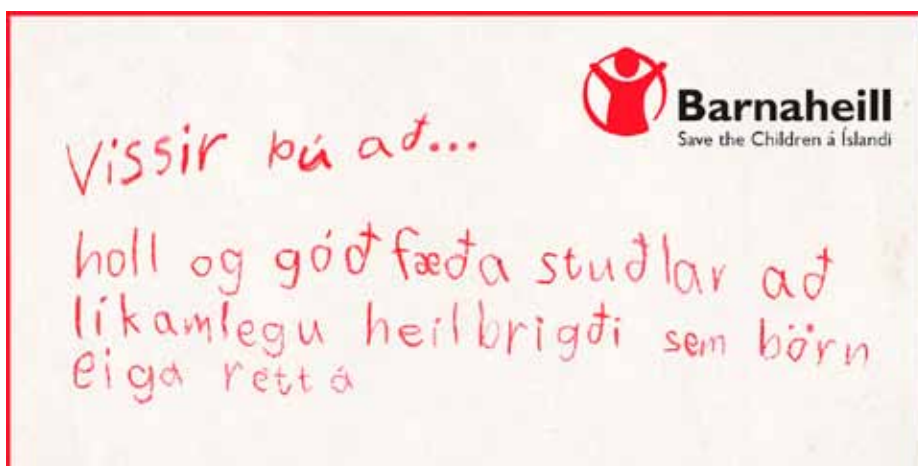 Barnaheill
Save the Children á Íslandi
Vissir þú að...
holl og góð fæða stuðlar að
líkamlegu heilbrigði sem börn
eiga rett á